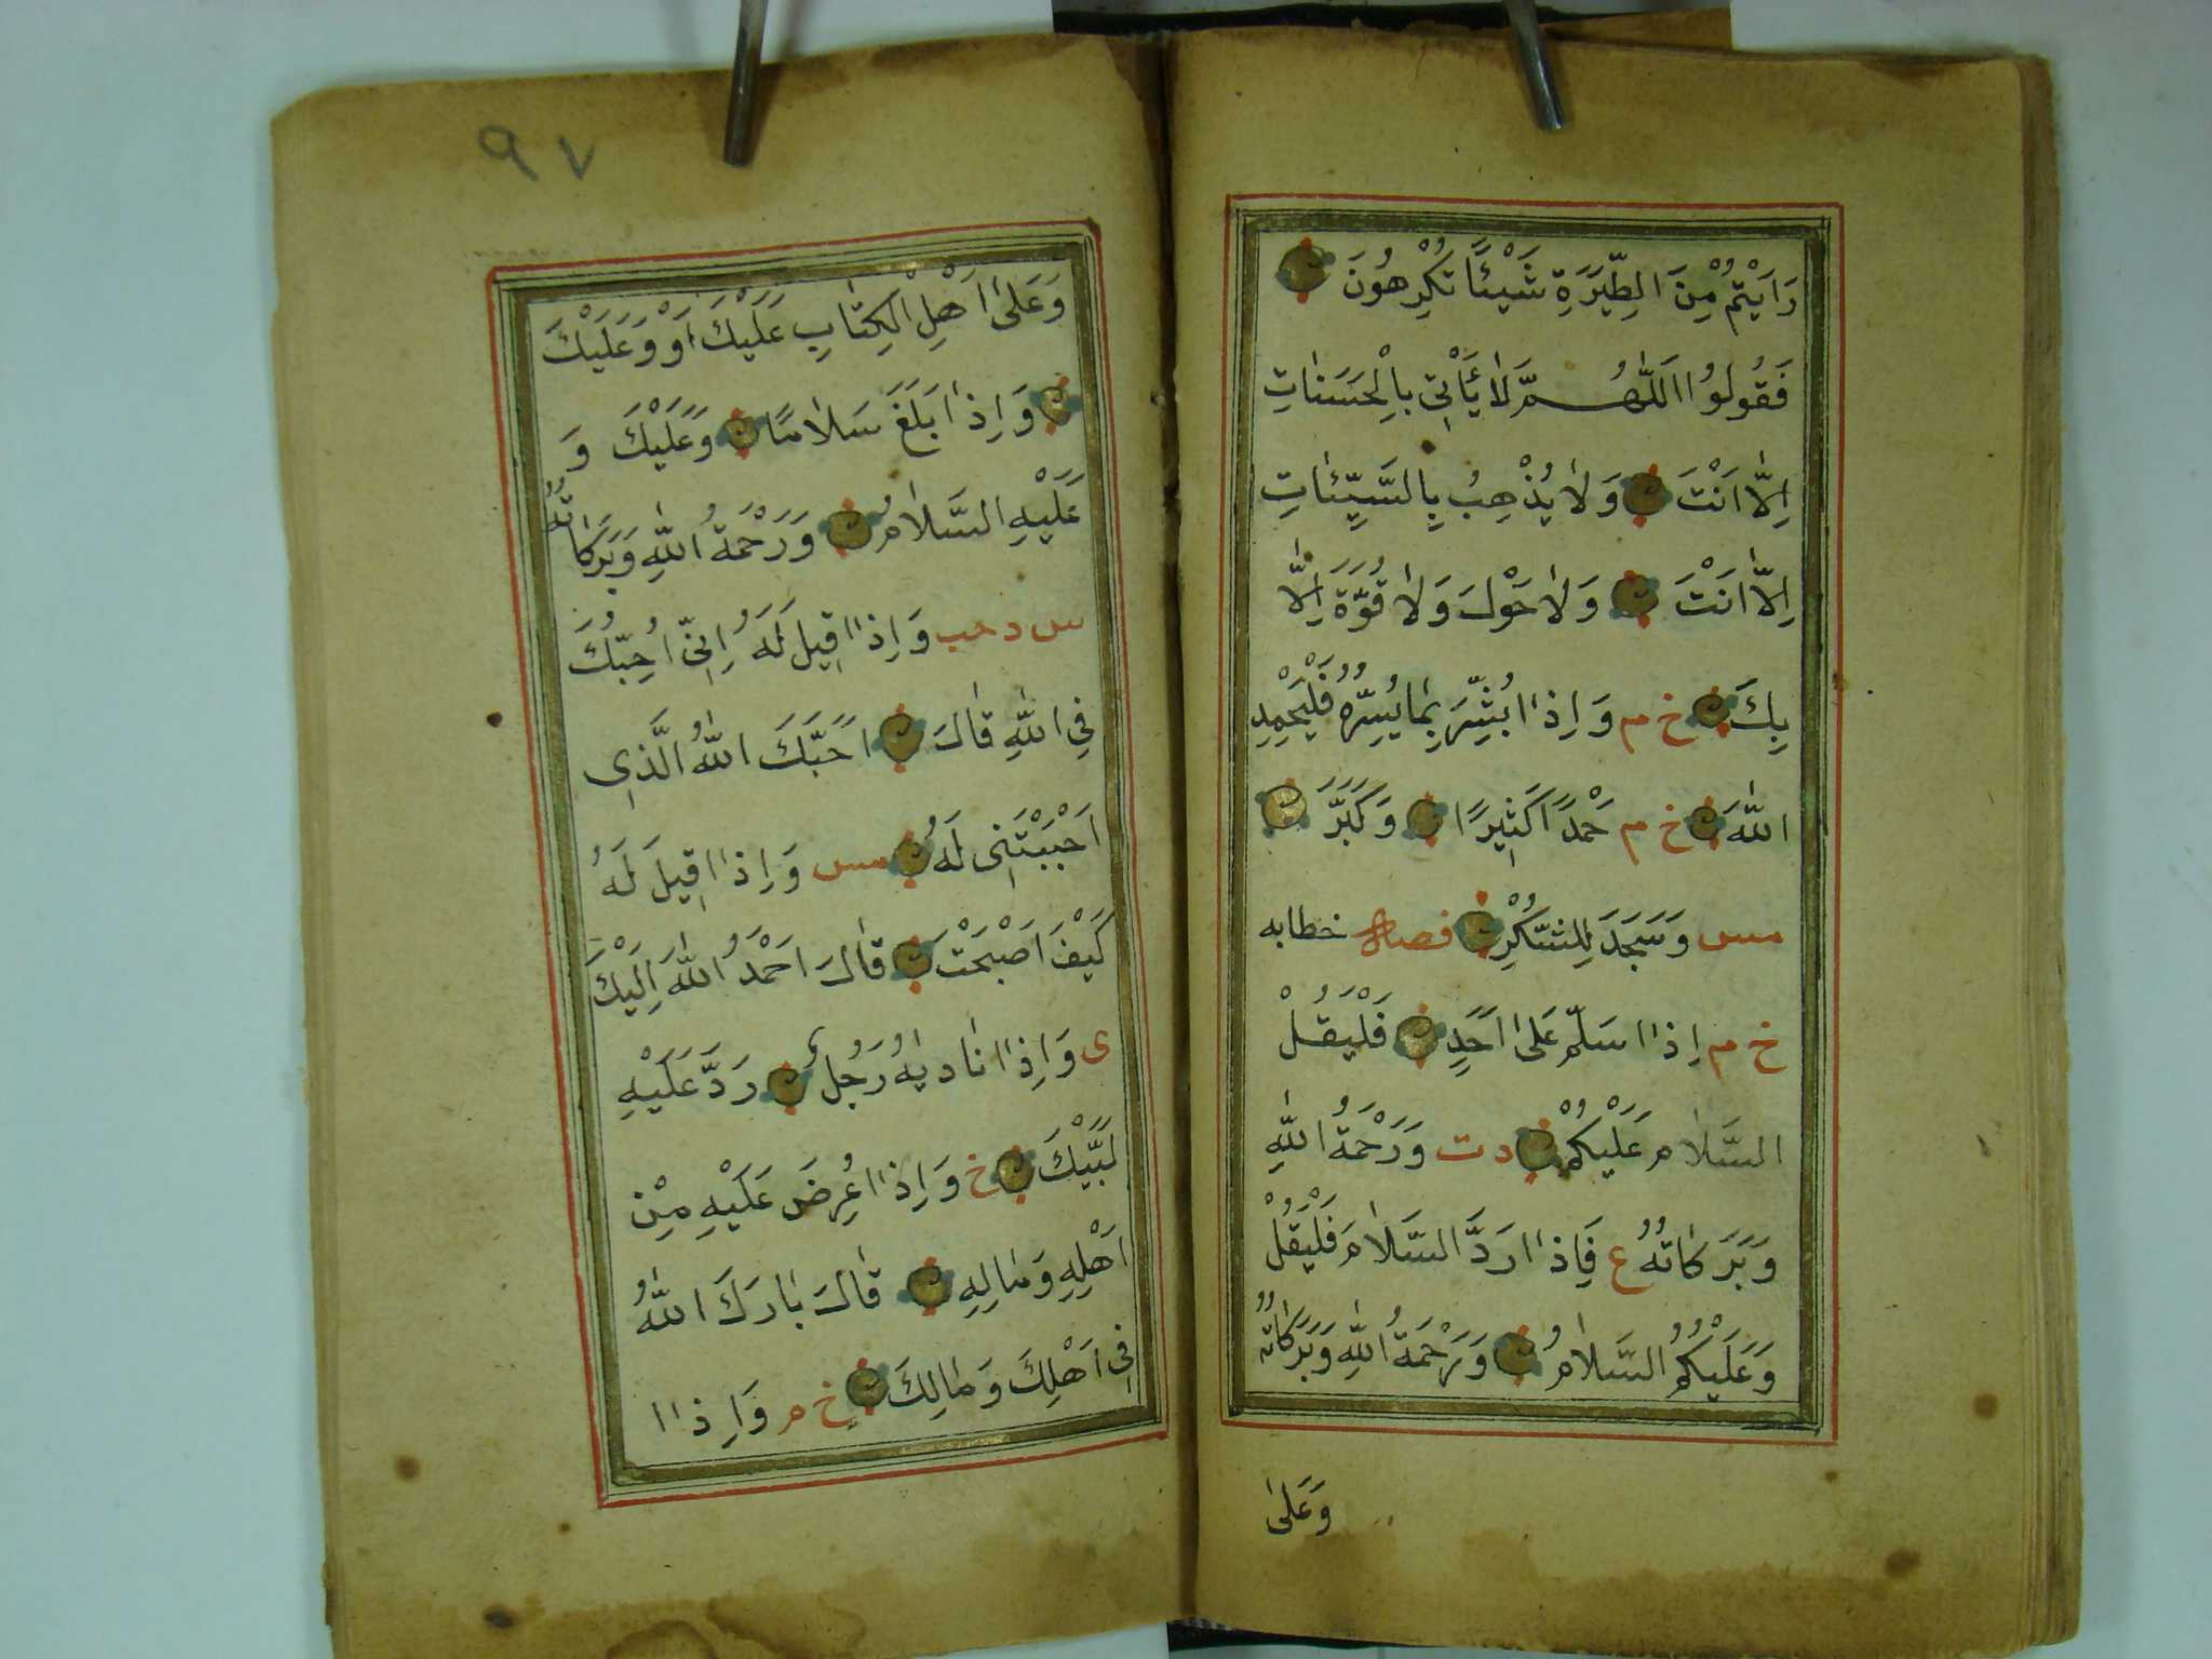 رَاَيْتُمْ مِنَ الطِّيَرَةِ شَيْئًا تَكْرَهُونَ
فَقُولُوا اَللّٰهُمَّ لَا يَأْتِي بِالْحَسَنَاتِ
اِلَّا اَنْتَ وَلَا يُذْهِبُ بِالسَّيِّئَاتِ
اِلَّا اَنْتَ وَلَا حَوْلَ وَلَا قُوَّةَ اِلَّا
بِكَ خ م وَاِذَا بُشِّرَ بِمَا يُسِرُّهُ فَلْيَحْمَدِ
اللّٰهَ خ م حَمْدًا كَثِيرًا وَكَبَّرَ
مس وَسَجَدَ لِلشُّكْرِ فصل خطابه
خ م اِذَا سَلَّمَ عَلَى اَحَدٍ فَلْيَقُلْ
السَّلَامُ عَلَيْكُمْ د ت وَرَحْمَةُ اللّٰهِ
وَبَرَكَاتُهُ ع فَاِذَا رَدَّ السَّلَامَ فَلْيَقُلْ
وَعَلَيْكُمُ السَّلَامُ وَرَحْمَةُ اللّٰهِ وَبَرَكَاتُهُ
وَعَلَى
٩٧
وَعَلَى اَهْلِ الْكِتَابِ عَلَيْكَ اَوْ وَعَلَيْكَ
وَاِذَا بَلَغَ سَلَامًا وَعَلَيْكَ وَ
عَلَيْهِ السَّلَامُ وَرَحْمَةُ اللّٰهِ وَبَرَكَاتُهُ
س د حب وَاِذَا قِيلَ لَهُ اِنِّي اُحِبُّكَ
فِي اللّٰهِ قَالَ اَحَبَّكَ اللّٰهُ الَّذِي
اَحْبَبْتَنِي لَهُ مس وَاِذَا قِيلَ لَهُ
كَيْفَ اَصْبَحْتَ قَالَ اَحْمَدُ اللّٰهَ اِلَيْكَ
ى وَاِذَا نَادٰيهُ رَجُلٌ رَدَّ عَلَيْهِ
لَبَّيْكَ خ وَاِذَا عُرِضَ عَلَيْهِ مِنْ
اَهْلِهِ وَمَالِهِ قَالَ بَارَكَ اللّٰهُ
فِي اَهْلِكَ وَمَالِكَ خ م وَاِذَا